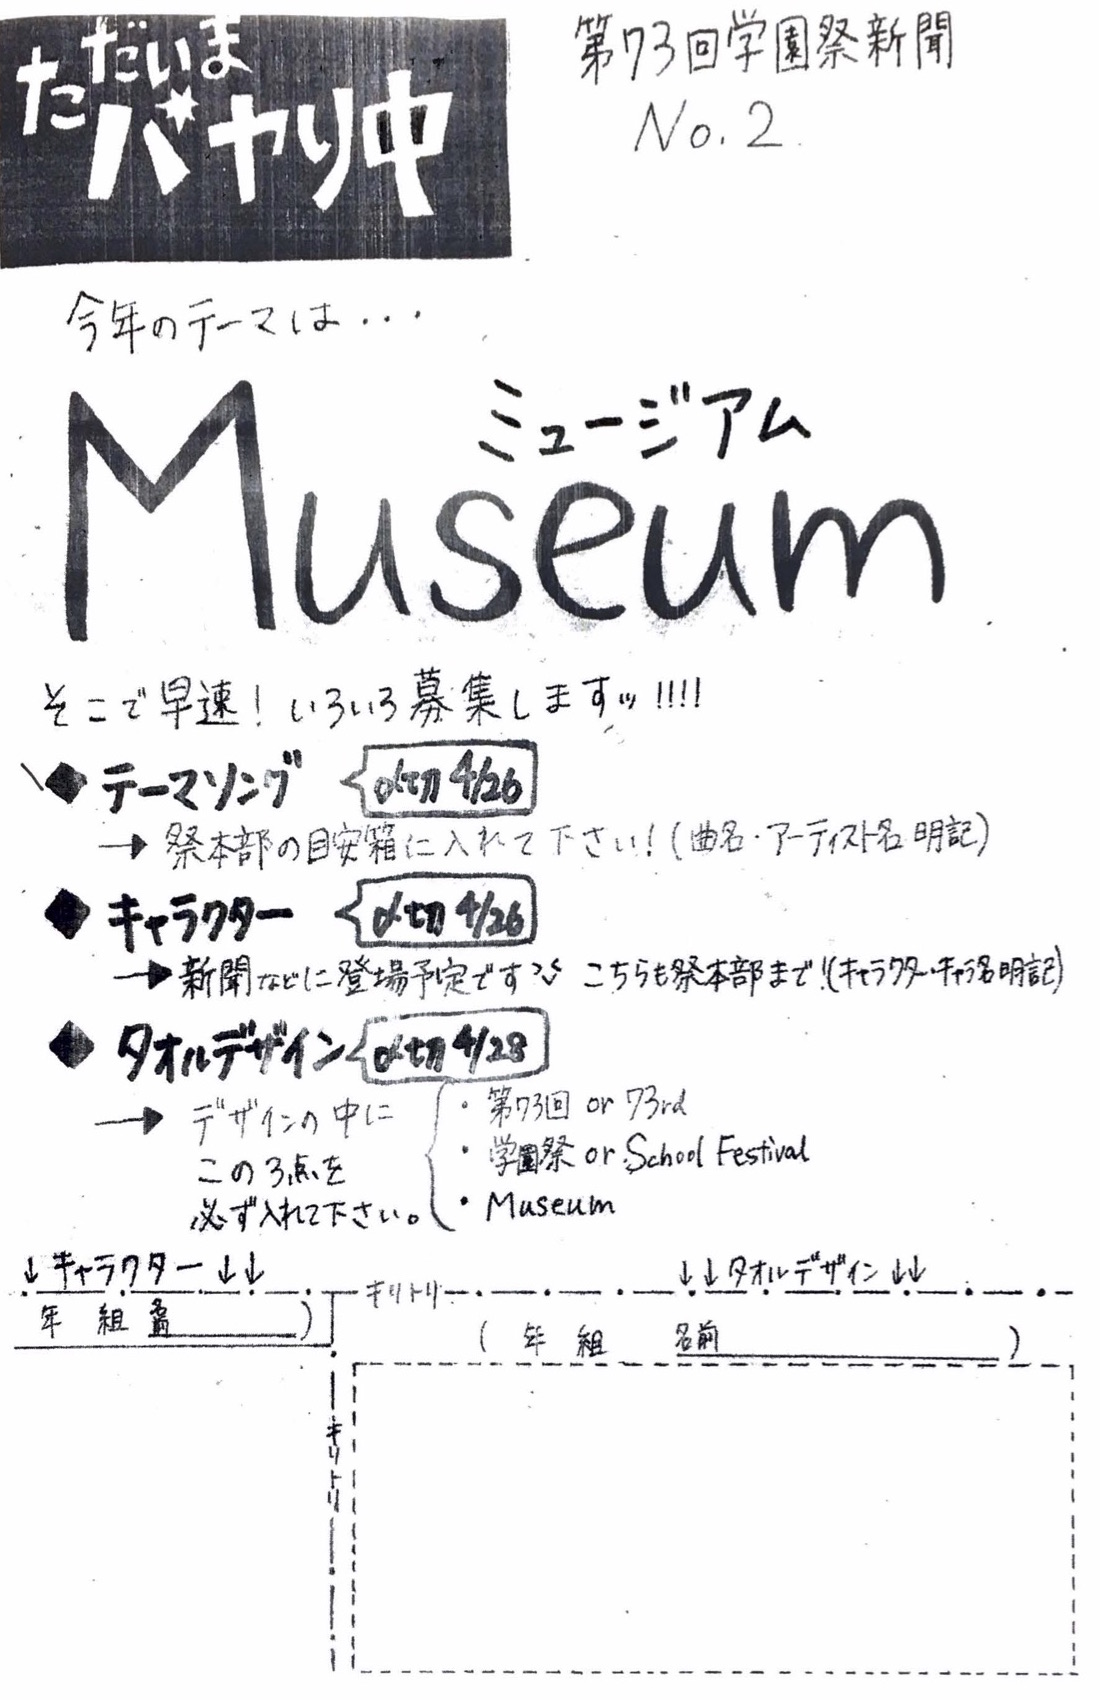 ただいま
バヤリ中
第73回学園祭新聞
No.2.
今年のテーマは・・・
ミュージアム
Museum
そこで早速!いろいろ募集しますッ!!!!
◆テーマソング 〆切4/26
→祭本部の目安箱に入れて下さい!(曲名・アーティスト名明記)
◆キャラクター 〆切4/26
→新聞などに登場予定です こちらも祭本部まで!(キャラクター・キャラ名明記)
◆タオルデザイン 〆切4/28
→デザインの中に
この3点を
必ず入れて下さい。
・第73回 or 73rd
・学園祭 or School Festival
・Museum
↓キャラクター↓↓
キリトリ
↓↓タオルデザイン↓↓
年 組 名前 )
( 年 組 名前 )
キリトリ